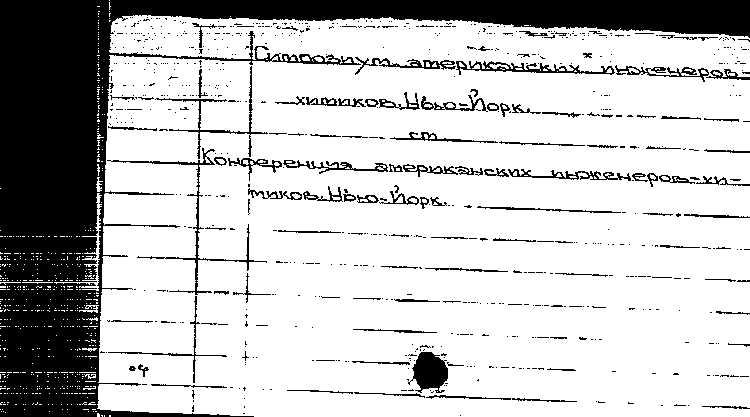 Симпозиум американских инженеров-
химиков. Нью-Йорк.
см.
Конференция американских инженеров-хи-
миков. Нью-Йорк.